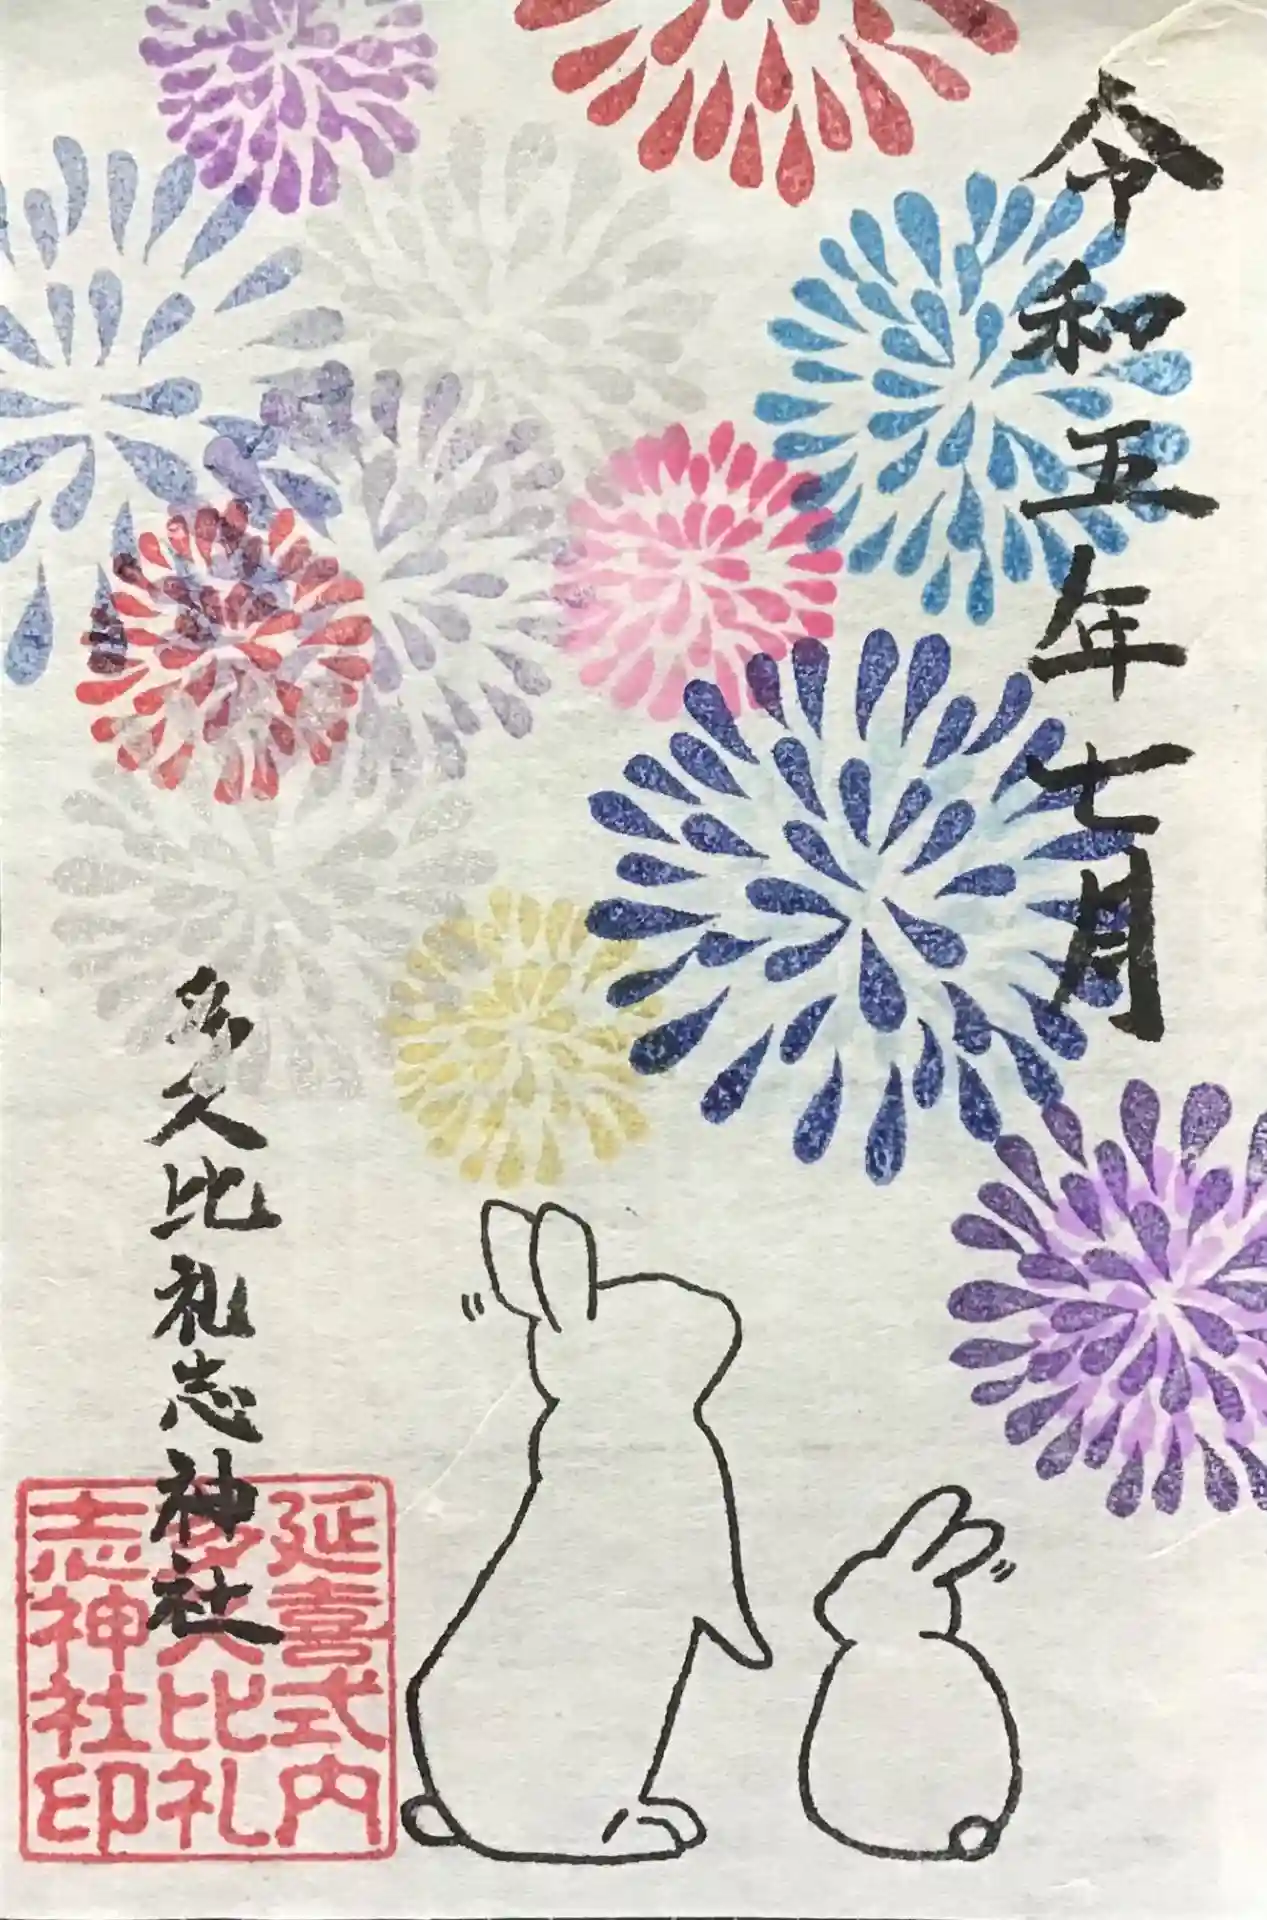 令和五年七月
多久比礼志神社
延喜式内
多久比礼
志神社印